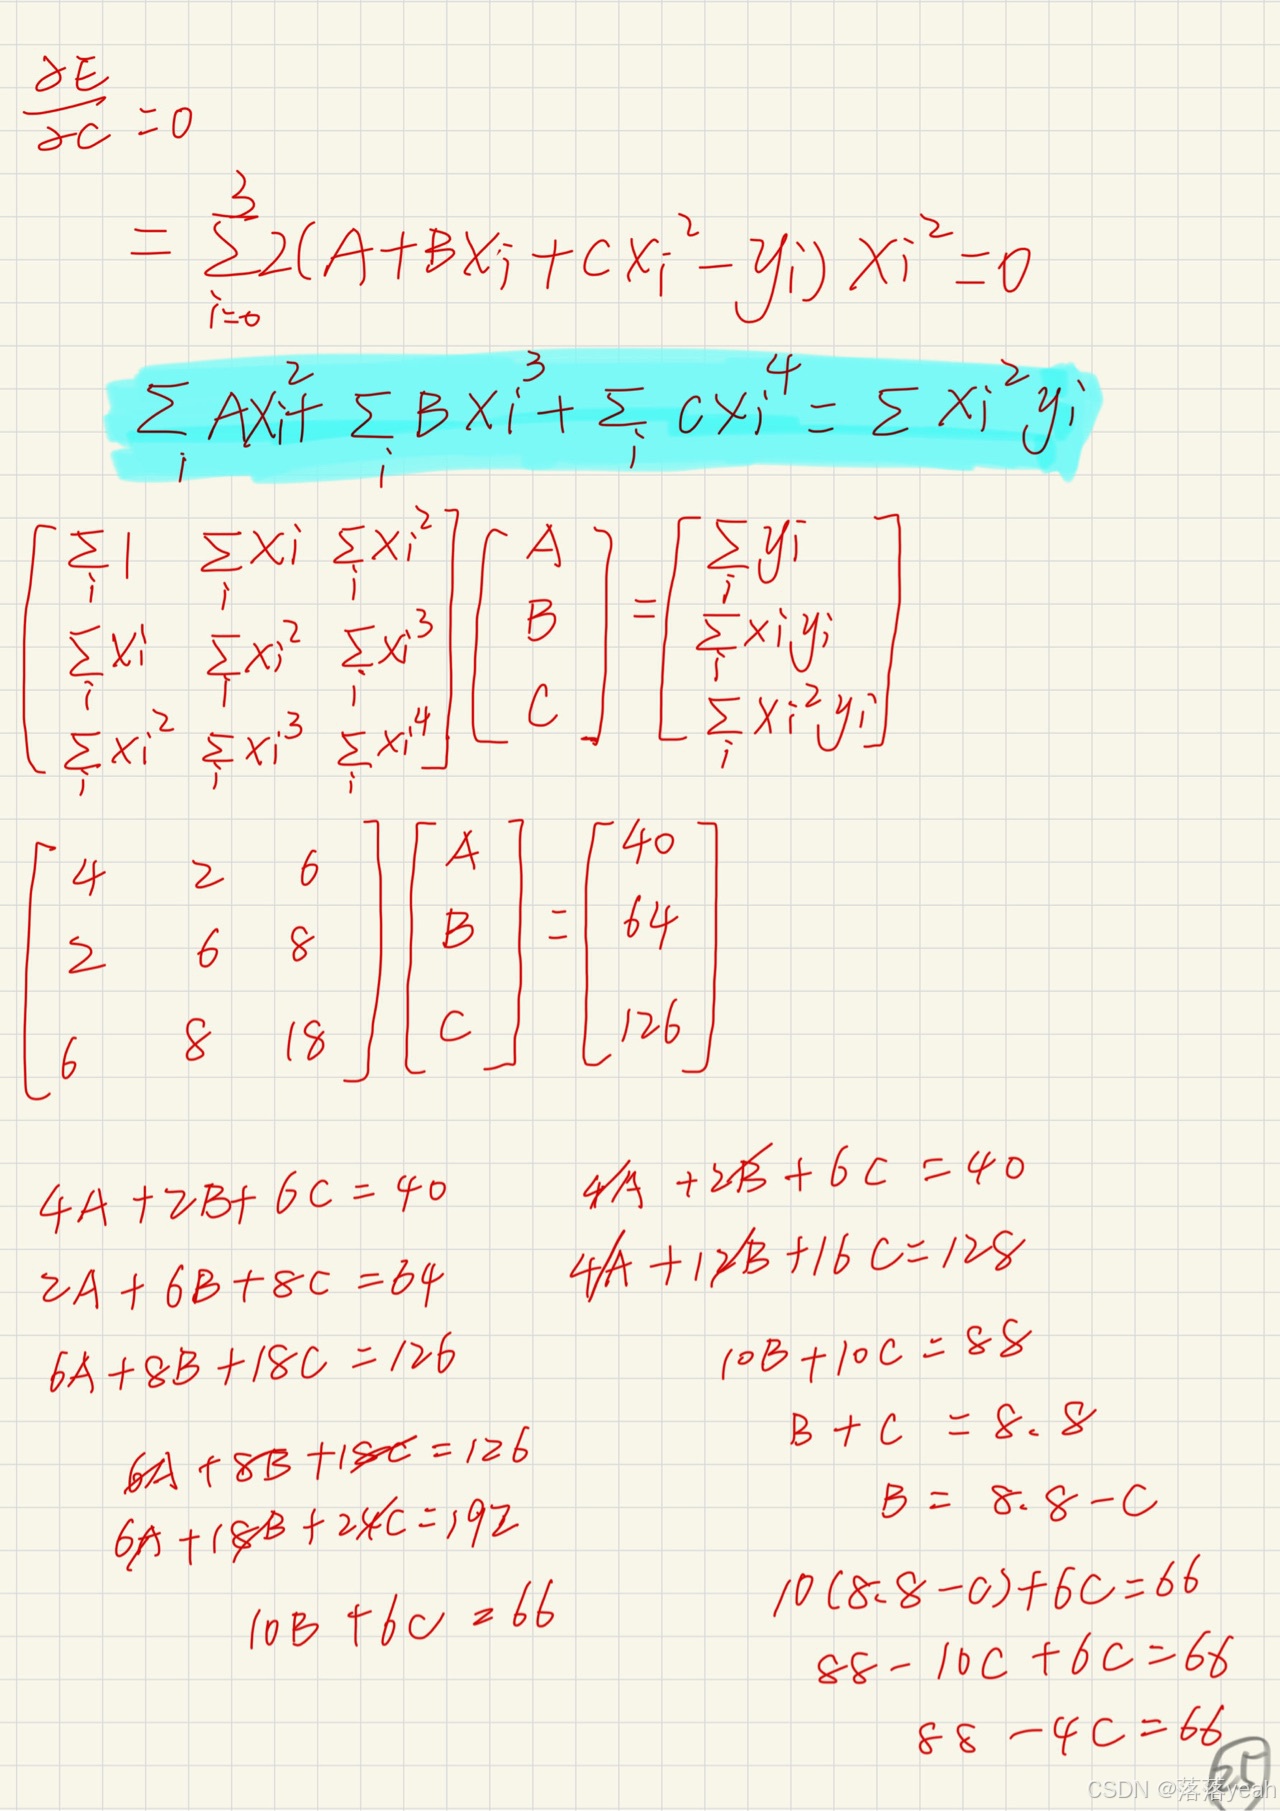 ∂E/∂C = 0
= Σ_{i=0}^{3} 2(A+BXi+CXi²-yi)Xi²=0
Σ_i AXi²+ Σ_i BXi³+ Σ_i CXi⁴= Σ Xi²yi
[Σ_i 1 Σ_i Xi Σ_i Xi²] [A] = [Σ_i yi]
[Σ_i Xi Σ_i Xi² Σ_i Xi³] [B] [Σ_i Xiyi]
[Σ_i Xi² Σ_i Xi³ Σ_i Xi⁴] [C] [Σ_i Xi²yi]
[4 2 6] [A] = [40]
[2 6 8] [B] [64]
[6 8 18] [C] [126]
4A+2B+6C=40
2A+6B+8C=64
6A+8B+18C=126
6A+8B+18C=126
6A+18B+24C=192
10B+6C=66
4A+2B+6C=40
4A+12B+16C=128
10B+10C=88
B+C=8.8
B=8.8-C
10(8.8-C)+6C=66
88-10C+6C=66
88-4C=66
25
CSDN @落落yeah